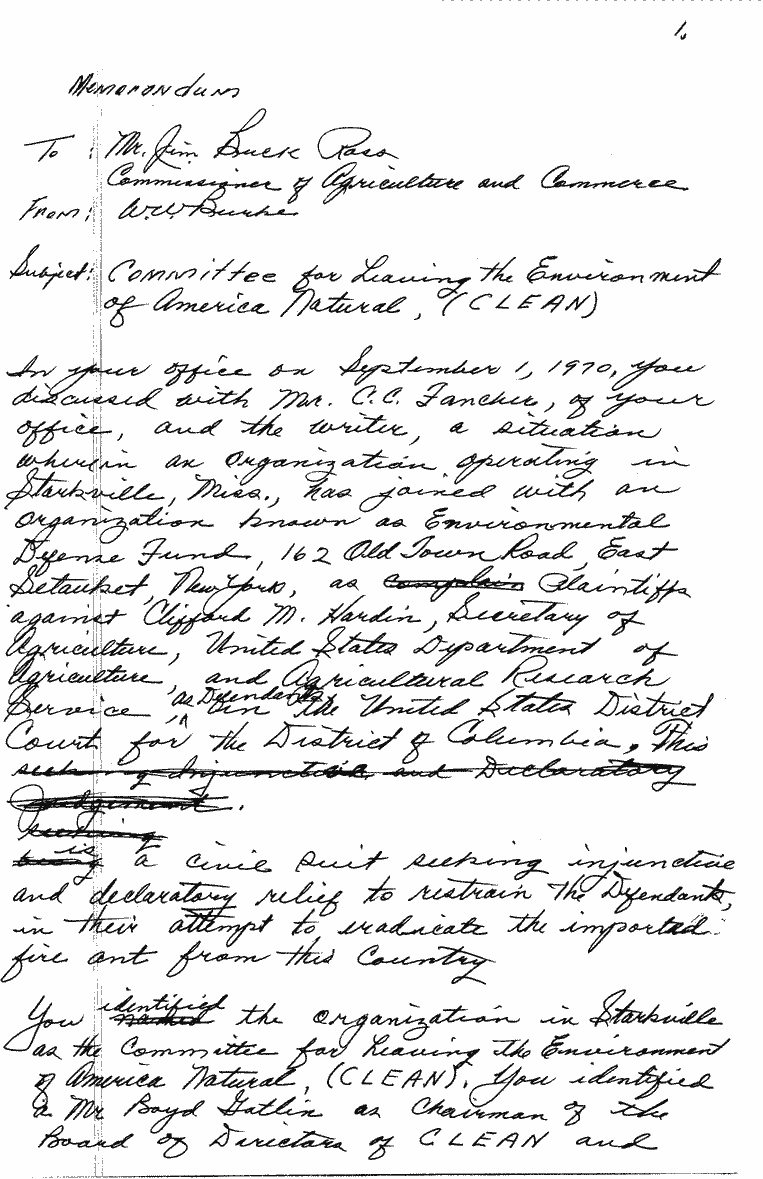 1.
Memorandum
To : Mr. Jim Buck Ross
Commissioner of Agriculture and Commerce
From: W.W. Burke
Subject: Committee for Leaving the Environment
of America Natural, (CLEAN)
In your office on September 1, 1970, you
discussed with Mr. C.C. Fancher, of your
office, and the writer, a situation
wherein an organization operating in
Starkville, Miss., has joined with an
organization known as Environmental
Defense Fund, 162 Old Town Road, East
Setauket, New York, as complain Plaintiffs
against Clifford M. Hardin, Secretary of
Agriculture, United States Department of
Agriculture, and Agricultural Research
Service, as Defendants in the United States District
Court for the District of Columbia. This
seeking Injunctive and Declaratory
Judgement.
seeking
being is a civil suit seeking injunctive
and declaratory relief to restrain the Defendants,
in their attempt to eradicate the imported
fire ant from this Country
You named identified the organization in Starkville
as the Committee for Leaving the Environment
of America Natural, (CLEAN). You identified
a Mr Boyd Gatlin as Chairman of the
Board of Directors of CLEAN and